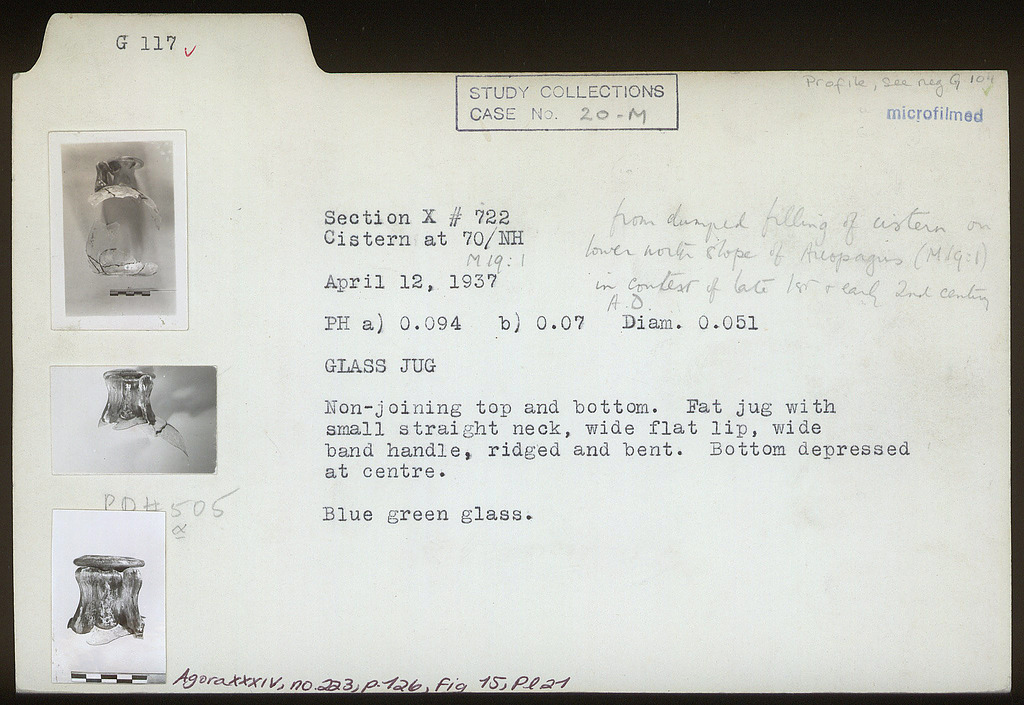 G 117 ✓
Profile, see neg G 104
STUDY COLLECTIONS
CASE No. 20-M
microfilmed
Section X # 722
Cistern at 70/NH
M 19:1
April 12, 1937
from dumped filling of cistern on
lower north slope of Areopagus (M19:1)
in context of late 1st & early 2nd century
A.D.
PH a) 0.094 b) 0.07 Diam. 0.051
GLASS JUG
Non-joining top and bottom. Fat jug with
small straight neck, wide flat lip, wide
band handle, ridged and bent. Bottom depressed
at centre.
Blue green glass.
PD# 505
α
Agora XXXIV, no. 223, p. 126, Fig 15, Pl 21